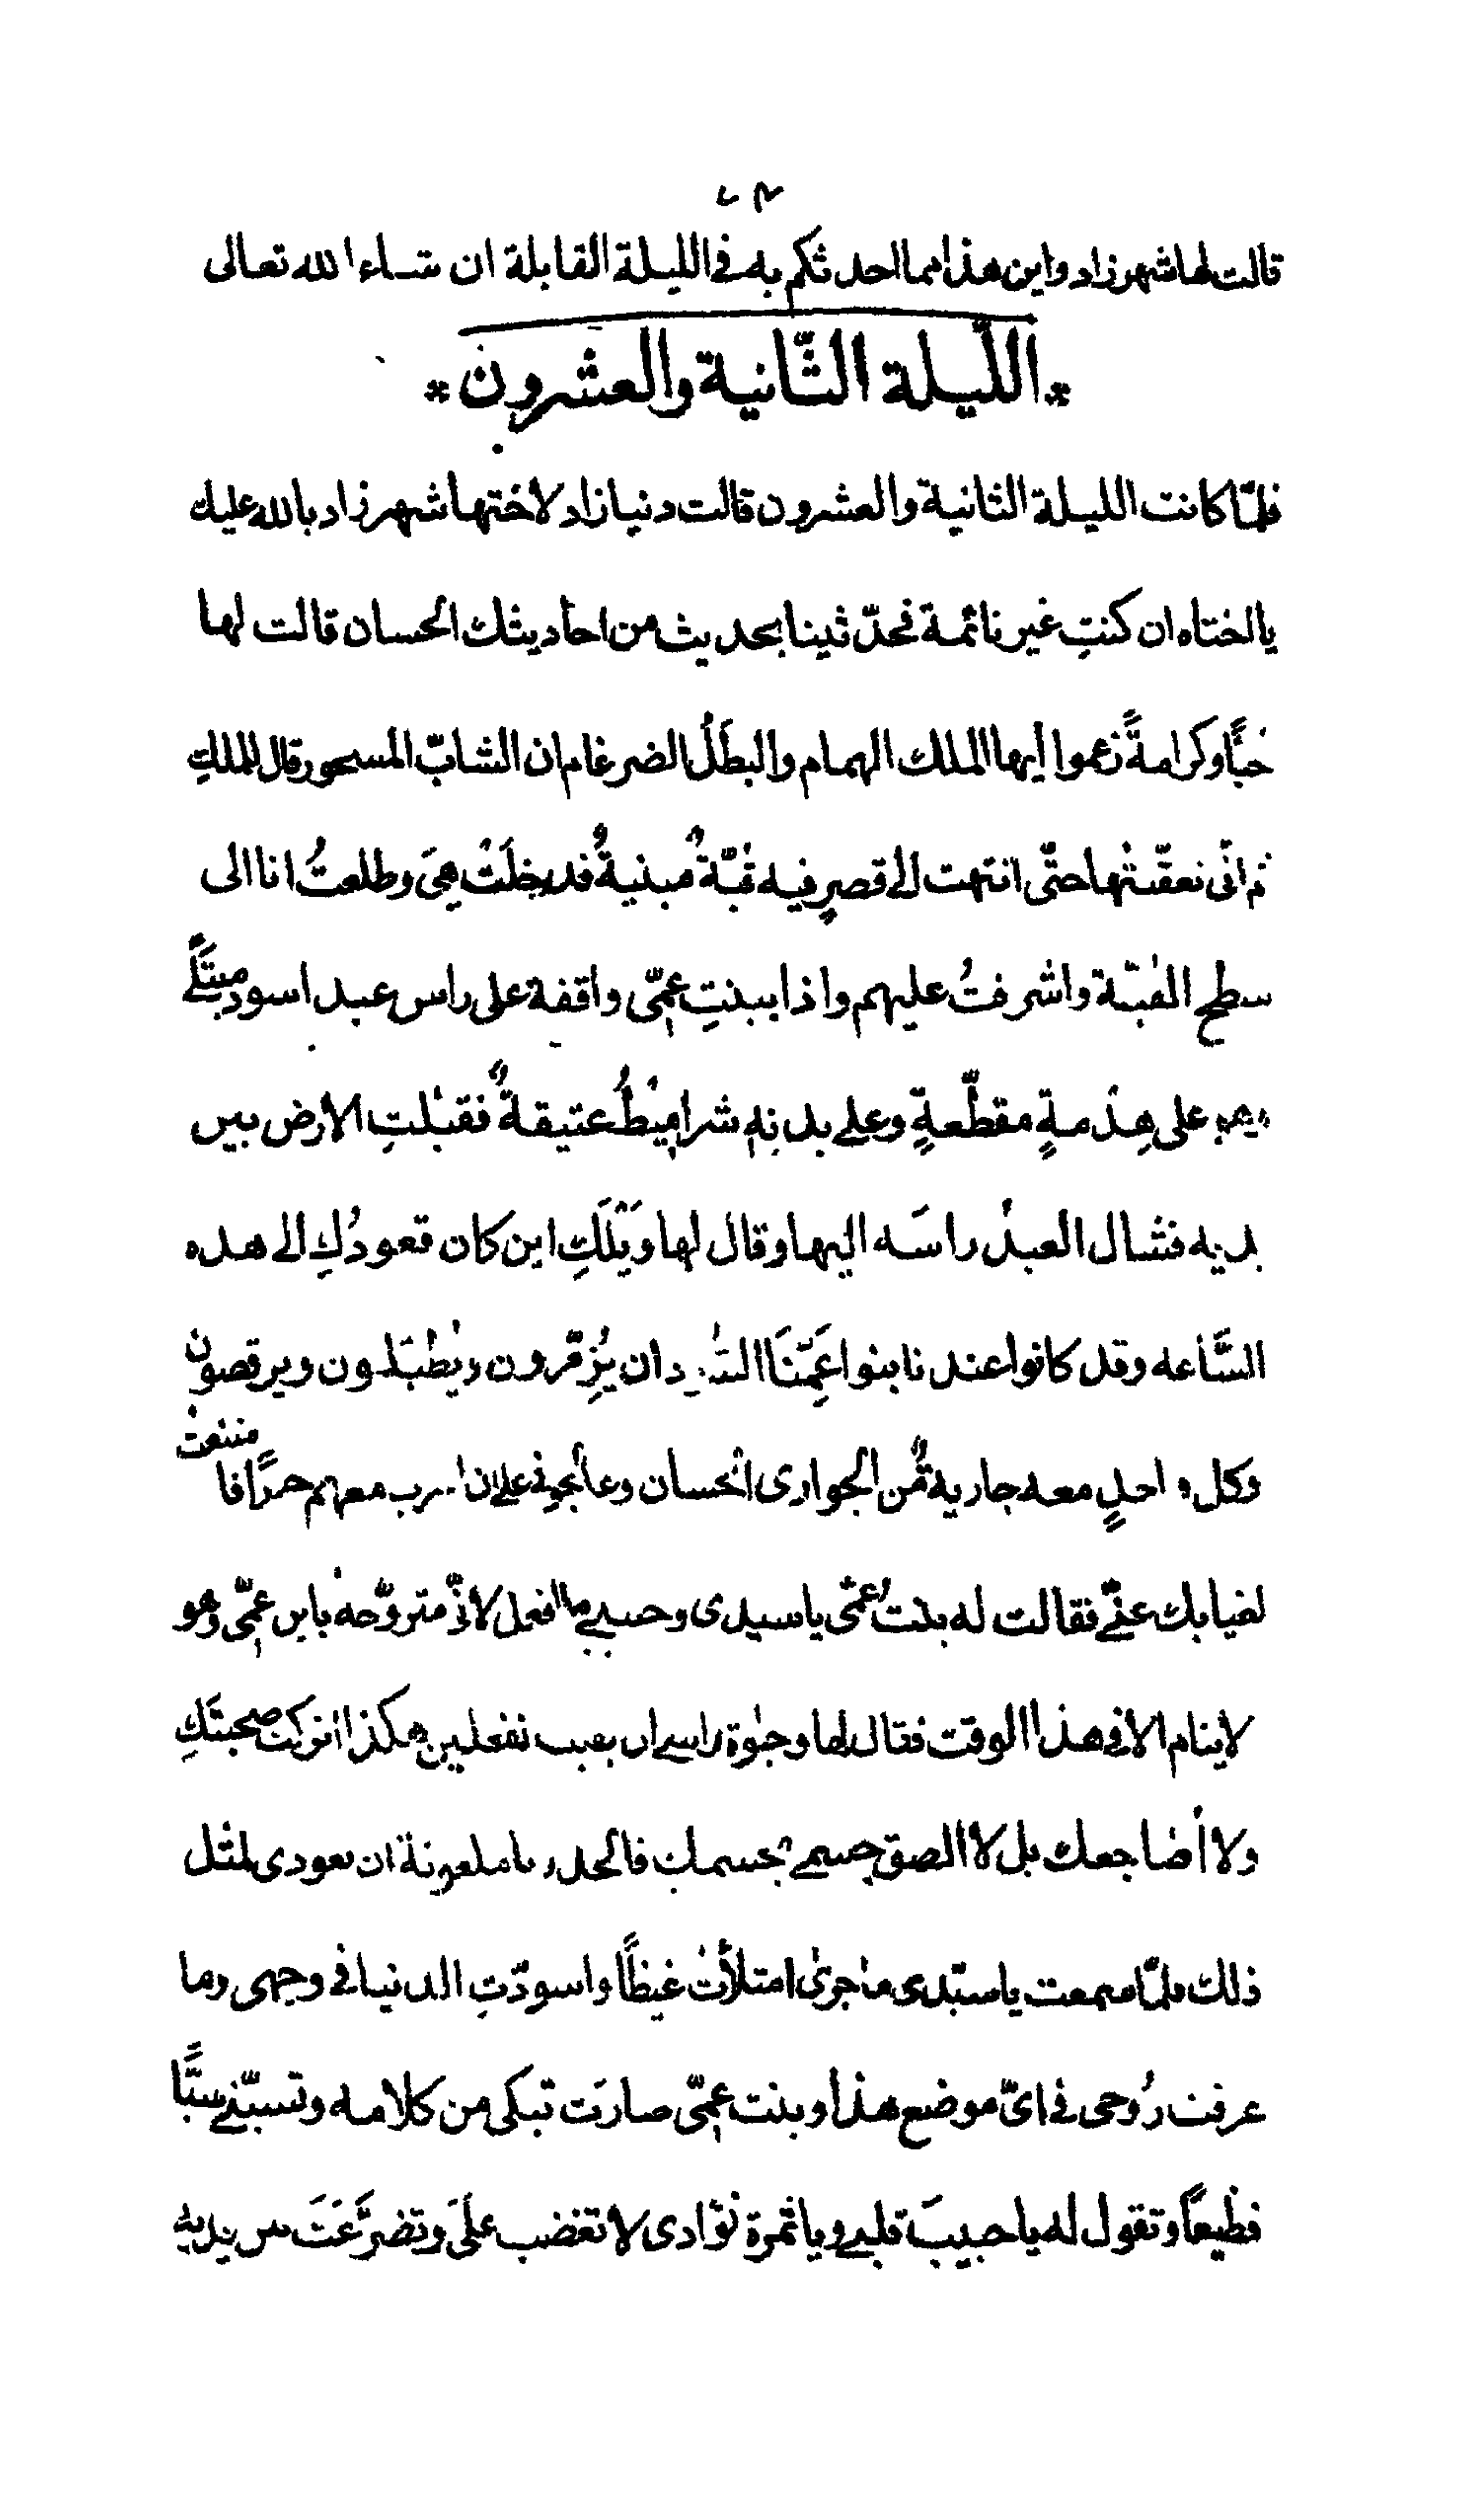 قالت لها شهرزاد واين هذا مما احدثكم به في الليلة القابلة ان شاء الله تعالى
* الليلة الثانية والعشرون *
فلمّا كانت الليلة الثانية والعشرون قالت دنيازاد لاختها شهرزاد بالله عليك
يا اختاه ان كنتِ غير نائمة فحدّثينا بحديث من احاديثك الحسان قالت لها
حبًّا وكرامةً زعموا ايها الملك الهمام والبطلُ الضرغام ان الشابّ المسحور قال للملكِ
ثم انّى تعقّبتُها حتّى انتهت الى قصرٍ فيه قبّةٌ مبنيةٌ فدخلَتْ هِيَ وطلعتُ انا الى
سطح القبّة واشرفتُ عليهم واذا ببنتِ عمّى واقفة على راس عبد اسود مبتلًى
على هِدْمةٍ مقطّعةٍ وعلى بدنِه شراميطُ عتيقةٌ فقبّلتِ الارض بين
يديه فشال العبدُ راسَه اليها وقال لها ويْلَكِ اين كان قعودُكِ الى هذه
السَّاعه وقد كانوا عندنا بنوا عمِّنَا السُّودان يُزمّرون ويُطبّلون ويرقصون
وكل واحدٍ معه جاريةٌ من الجوارى الحسان وعا على ان معهم خمرًا فا متنعتُ
لغيابك عنّى فقالت له بنتُ عمّى يا سيدى وحبيبى ما افعل لانّى متزوّجهٌ بابن عمّى وهو
لا ينام الا فى هذا الوقت فقال لها وحيٰوة راسى ان بقيت تفعلين هكذا اتركت صحبتَكِ
ولا أضاجعك بل لا الصق جسمى بجسمك فالحذر يا ملعونة ان تعودى لمثل
ذلك فلمّا سمعت يا سيّدى ما جرى امتلأتُ غيظًا واسودّتِ الدنيا فى وجهى وما
عرفت رُوحى فى اىّ موضع هذا وبنت عمّى صارَت تبكى من كلامه وتسبّنى سبًّا
فظيعًا وتقول له يا حبيبَ قلبى ويا ثمرة فؤادى لا تغضب علىَّ وتضرَّعَتَ بين يديه